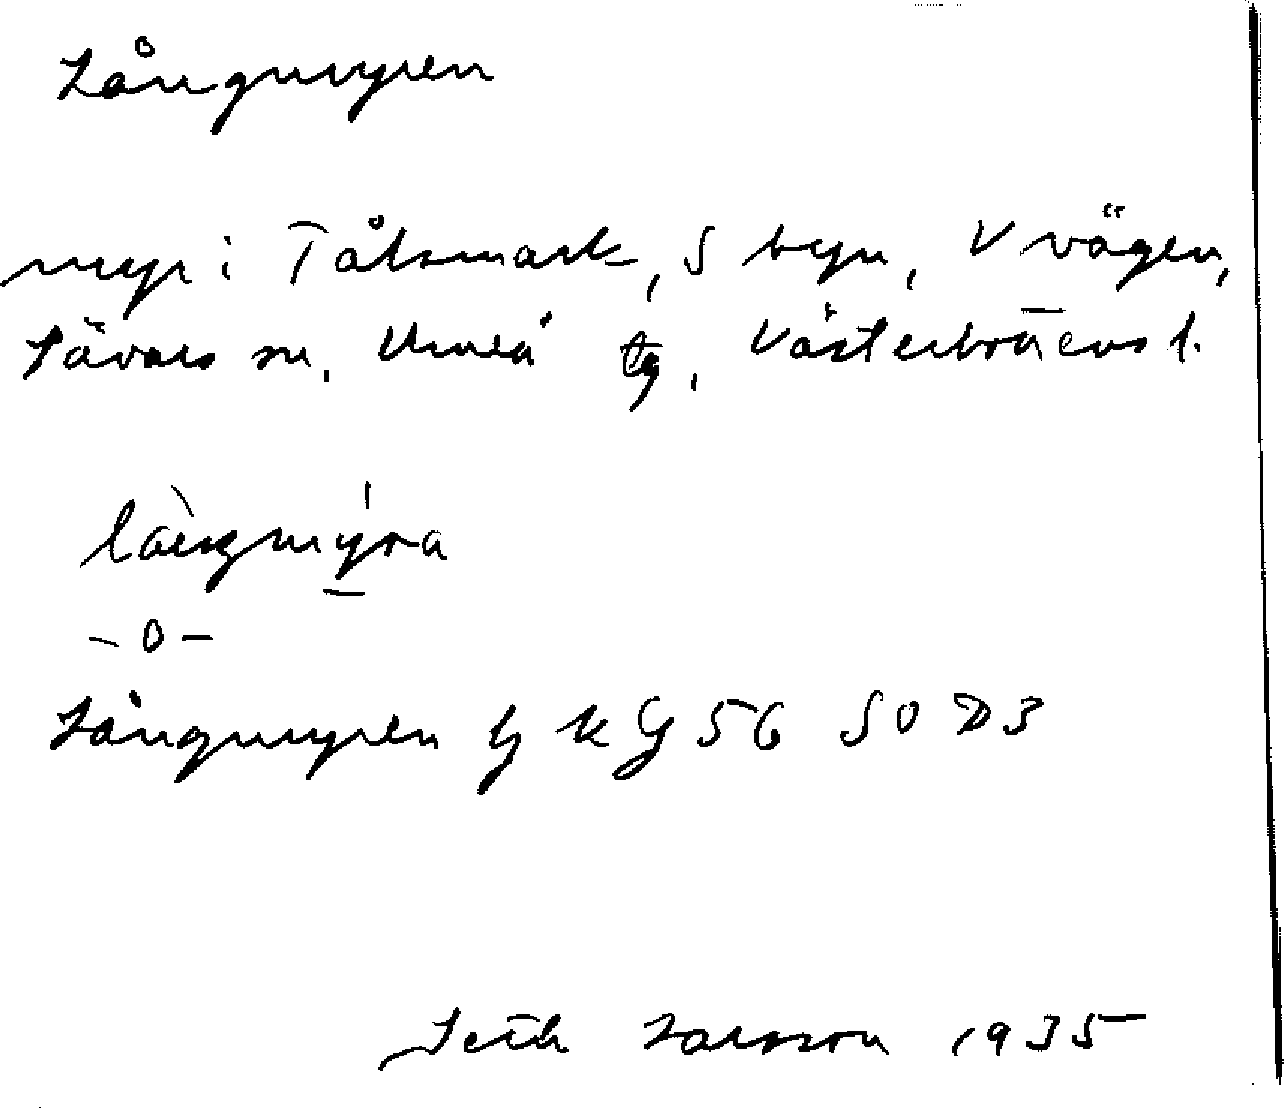 Långmyren
myr i Tålsmark, S byn, V vägen,
Sävars sn, Umeå tg, Västerbottens l.
långmyra
- o -
Långmyren Gg KG 56 SO D3
Seth Larsson 1935